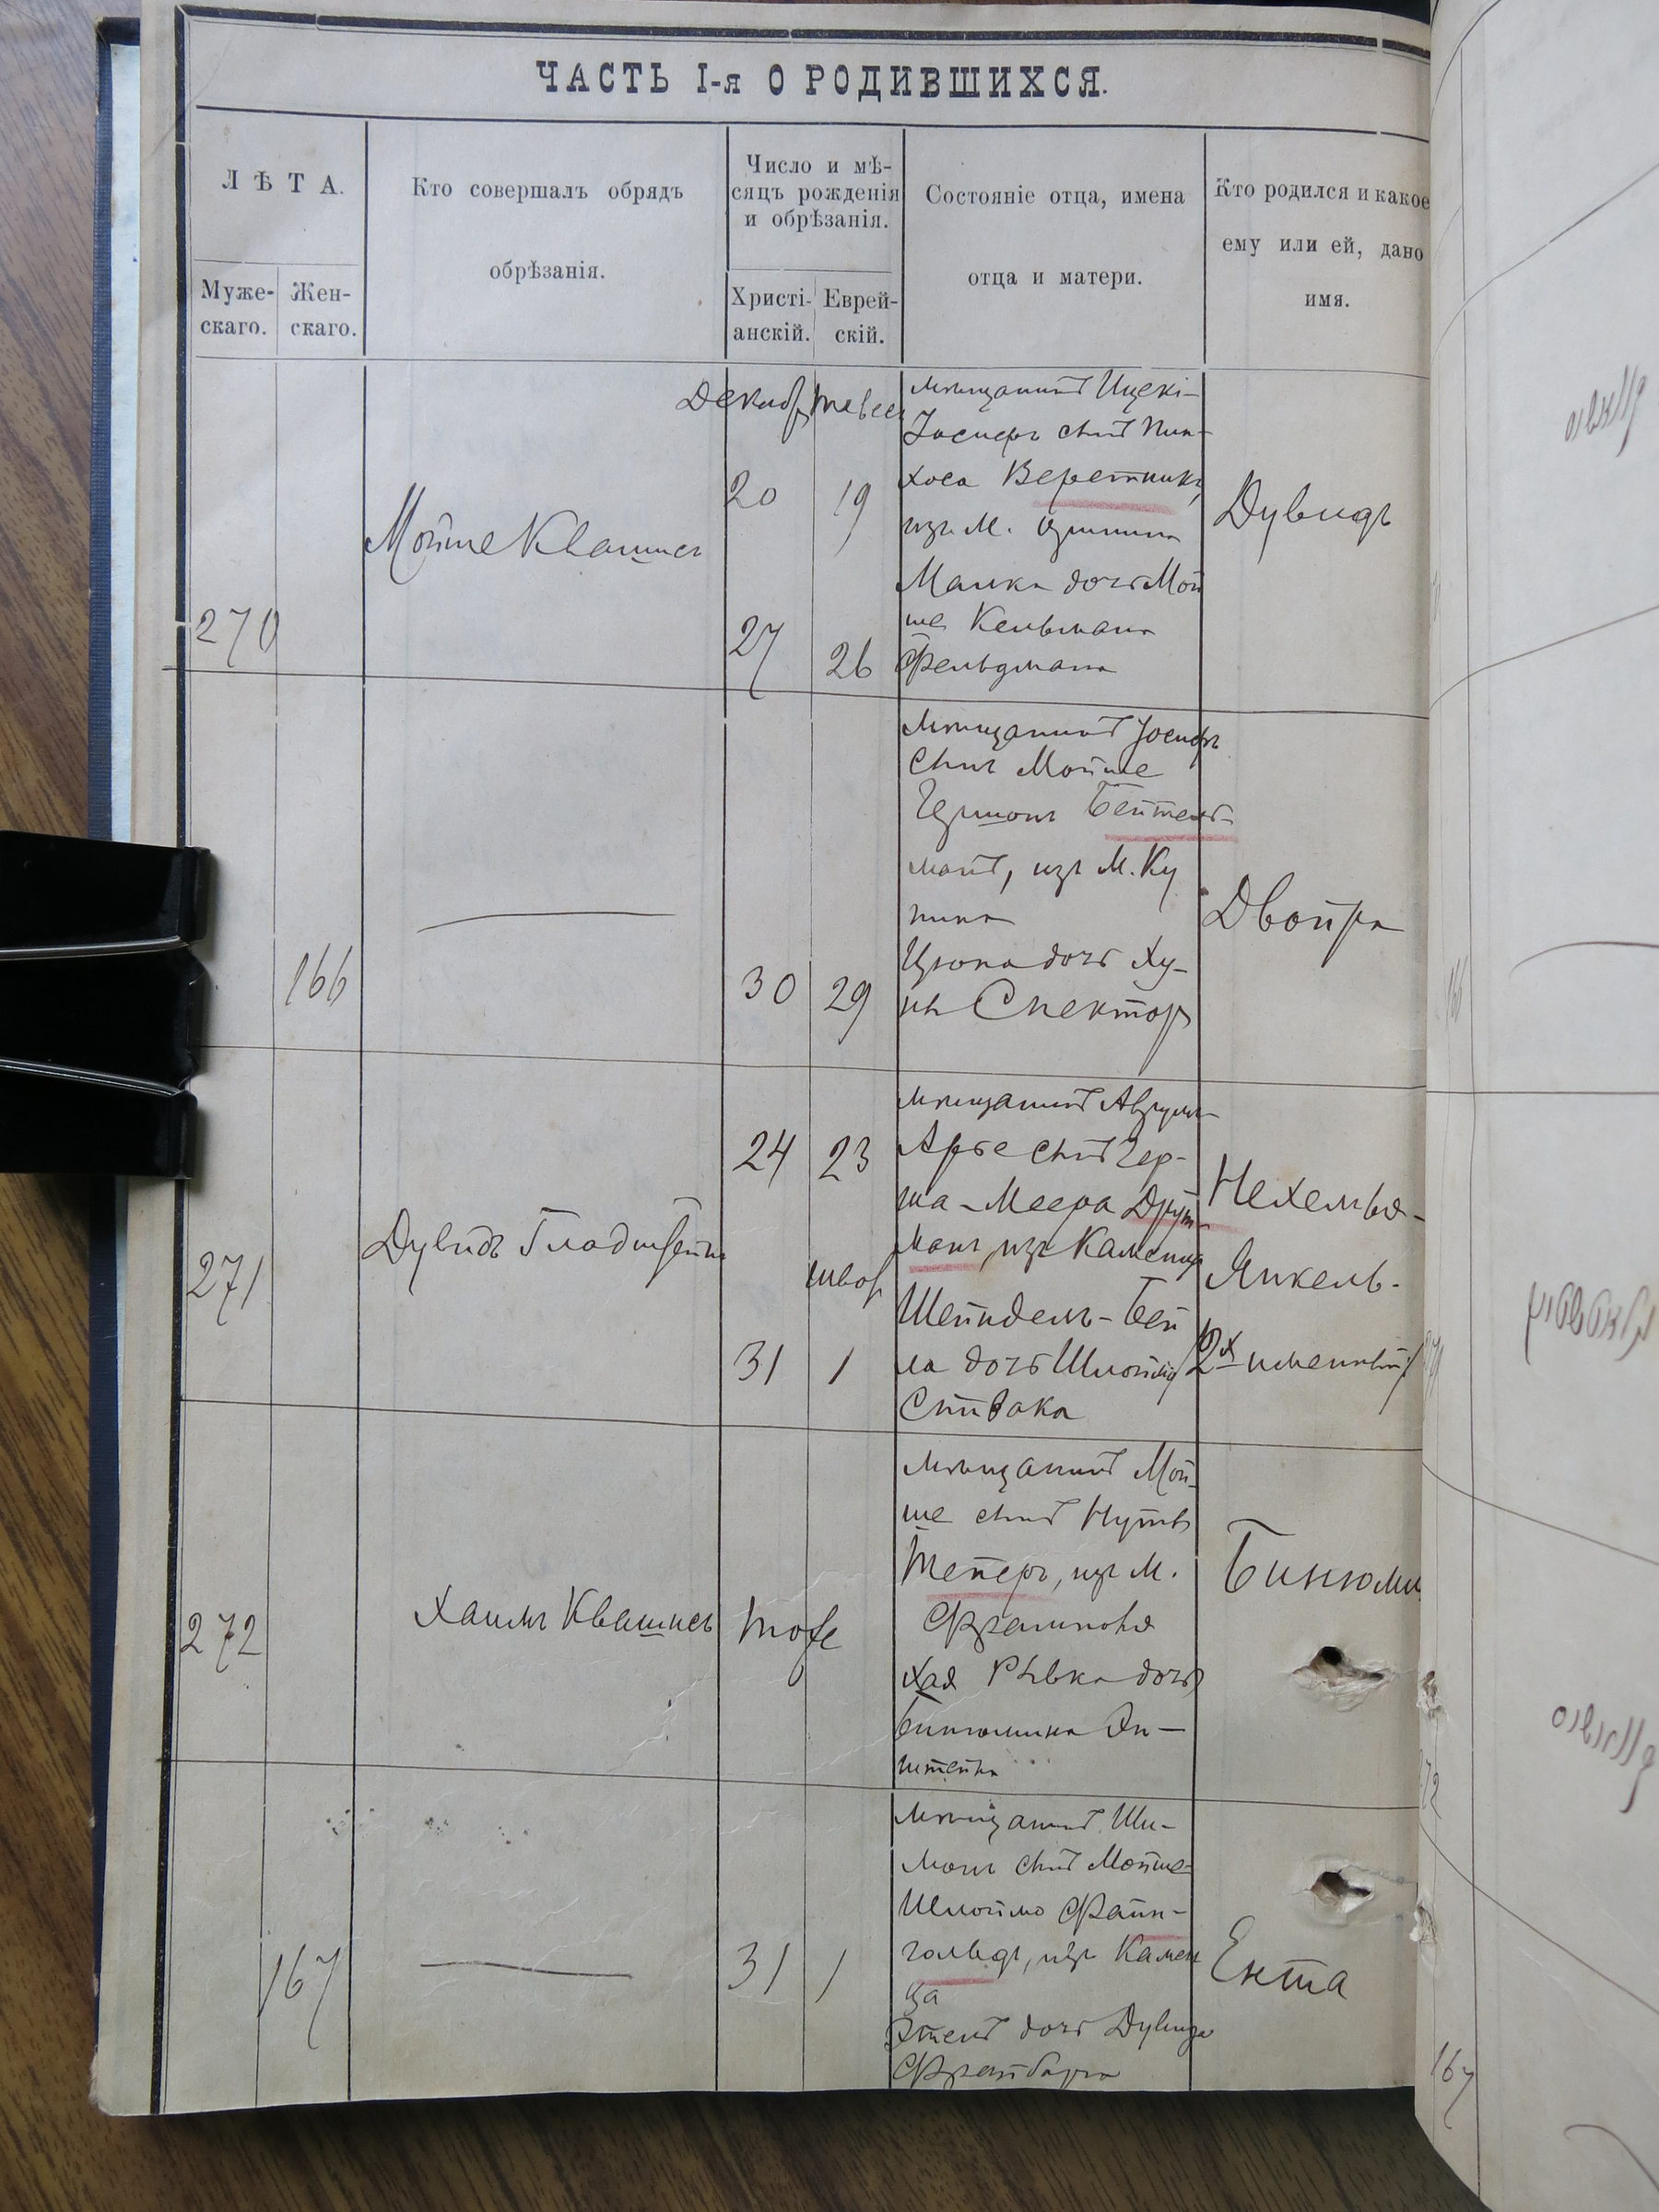 ЧАСТЬ I-я О РОДИВШИХСЯ.
ЛѢТА.
Муже-
скаго.
Жен-
скаго.
Кто совершалъ обрядъ
обрѣзанія.
Число и мѣ-
сяцъ рожденія
и обрѣзанія.
Христі-
анскій.
Еврей-
скій.
Состояніе отца, имена
отца и матери.
Кто родился и какое
ему или ей, дано
имя.
270
Мойше Квашисъ
Декабр
20
27
тевес
19
26
мѣщанинъ Ицекі-
Іосифъ сынъ Пин-
хоса Веретникъ,
изъ М.
Малка дочь Мой
ше Кельмана
Фельдмана
Дувидъ
166
30
29
мѣщанинъ Іосифъ
сынъ Мойше
Гершонъ Бейтель-
манъ, изъ М. Ку
пина
Ципа дочь Ху-
ны Спектор
Двойра
271
Дувидъ Гладштейнъ
24
31
23
швот
1
мѣщанинъ Аврумъ
Арье сынъ Гер-
ша-Меера Друт-
манъ, изъ Каменца
Шейндель-Бей
ла дочь Шлоймы
Спивака
Нехемья-
Янкель-
/2х именный/
272
Хаимъ Квашисъ
тоже
мѣщанинъ Мой-
ше сынъ Нуты
Теперъ, изъ М.
Фрамполя
Хая Рывка дочь
Биньюмина Эп-
штейна
Биньюми
167
31
1
мѣщанинъ Ши-
монъ сынъ Мойше-
Шлоймо Файн-
гольдъ, изъ Камен
ца
Этель дочь Дувида
Ента
167